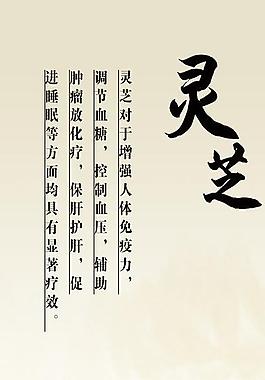 灵芝
灵芝对于增强人体免疫力，
调节血糖，控制血压，辅助
肿瘤放化疗，保肝护肝，促
进睡眠等方面均具有显著疗效。